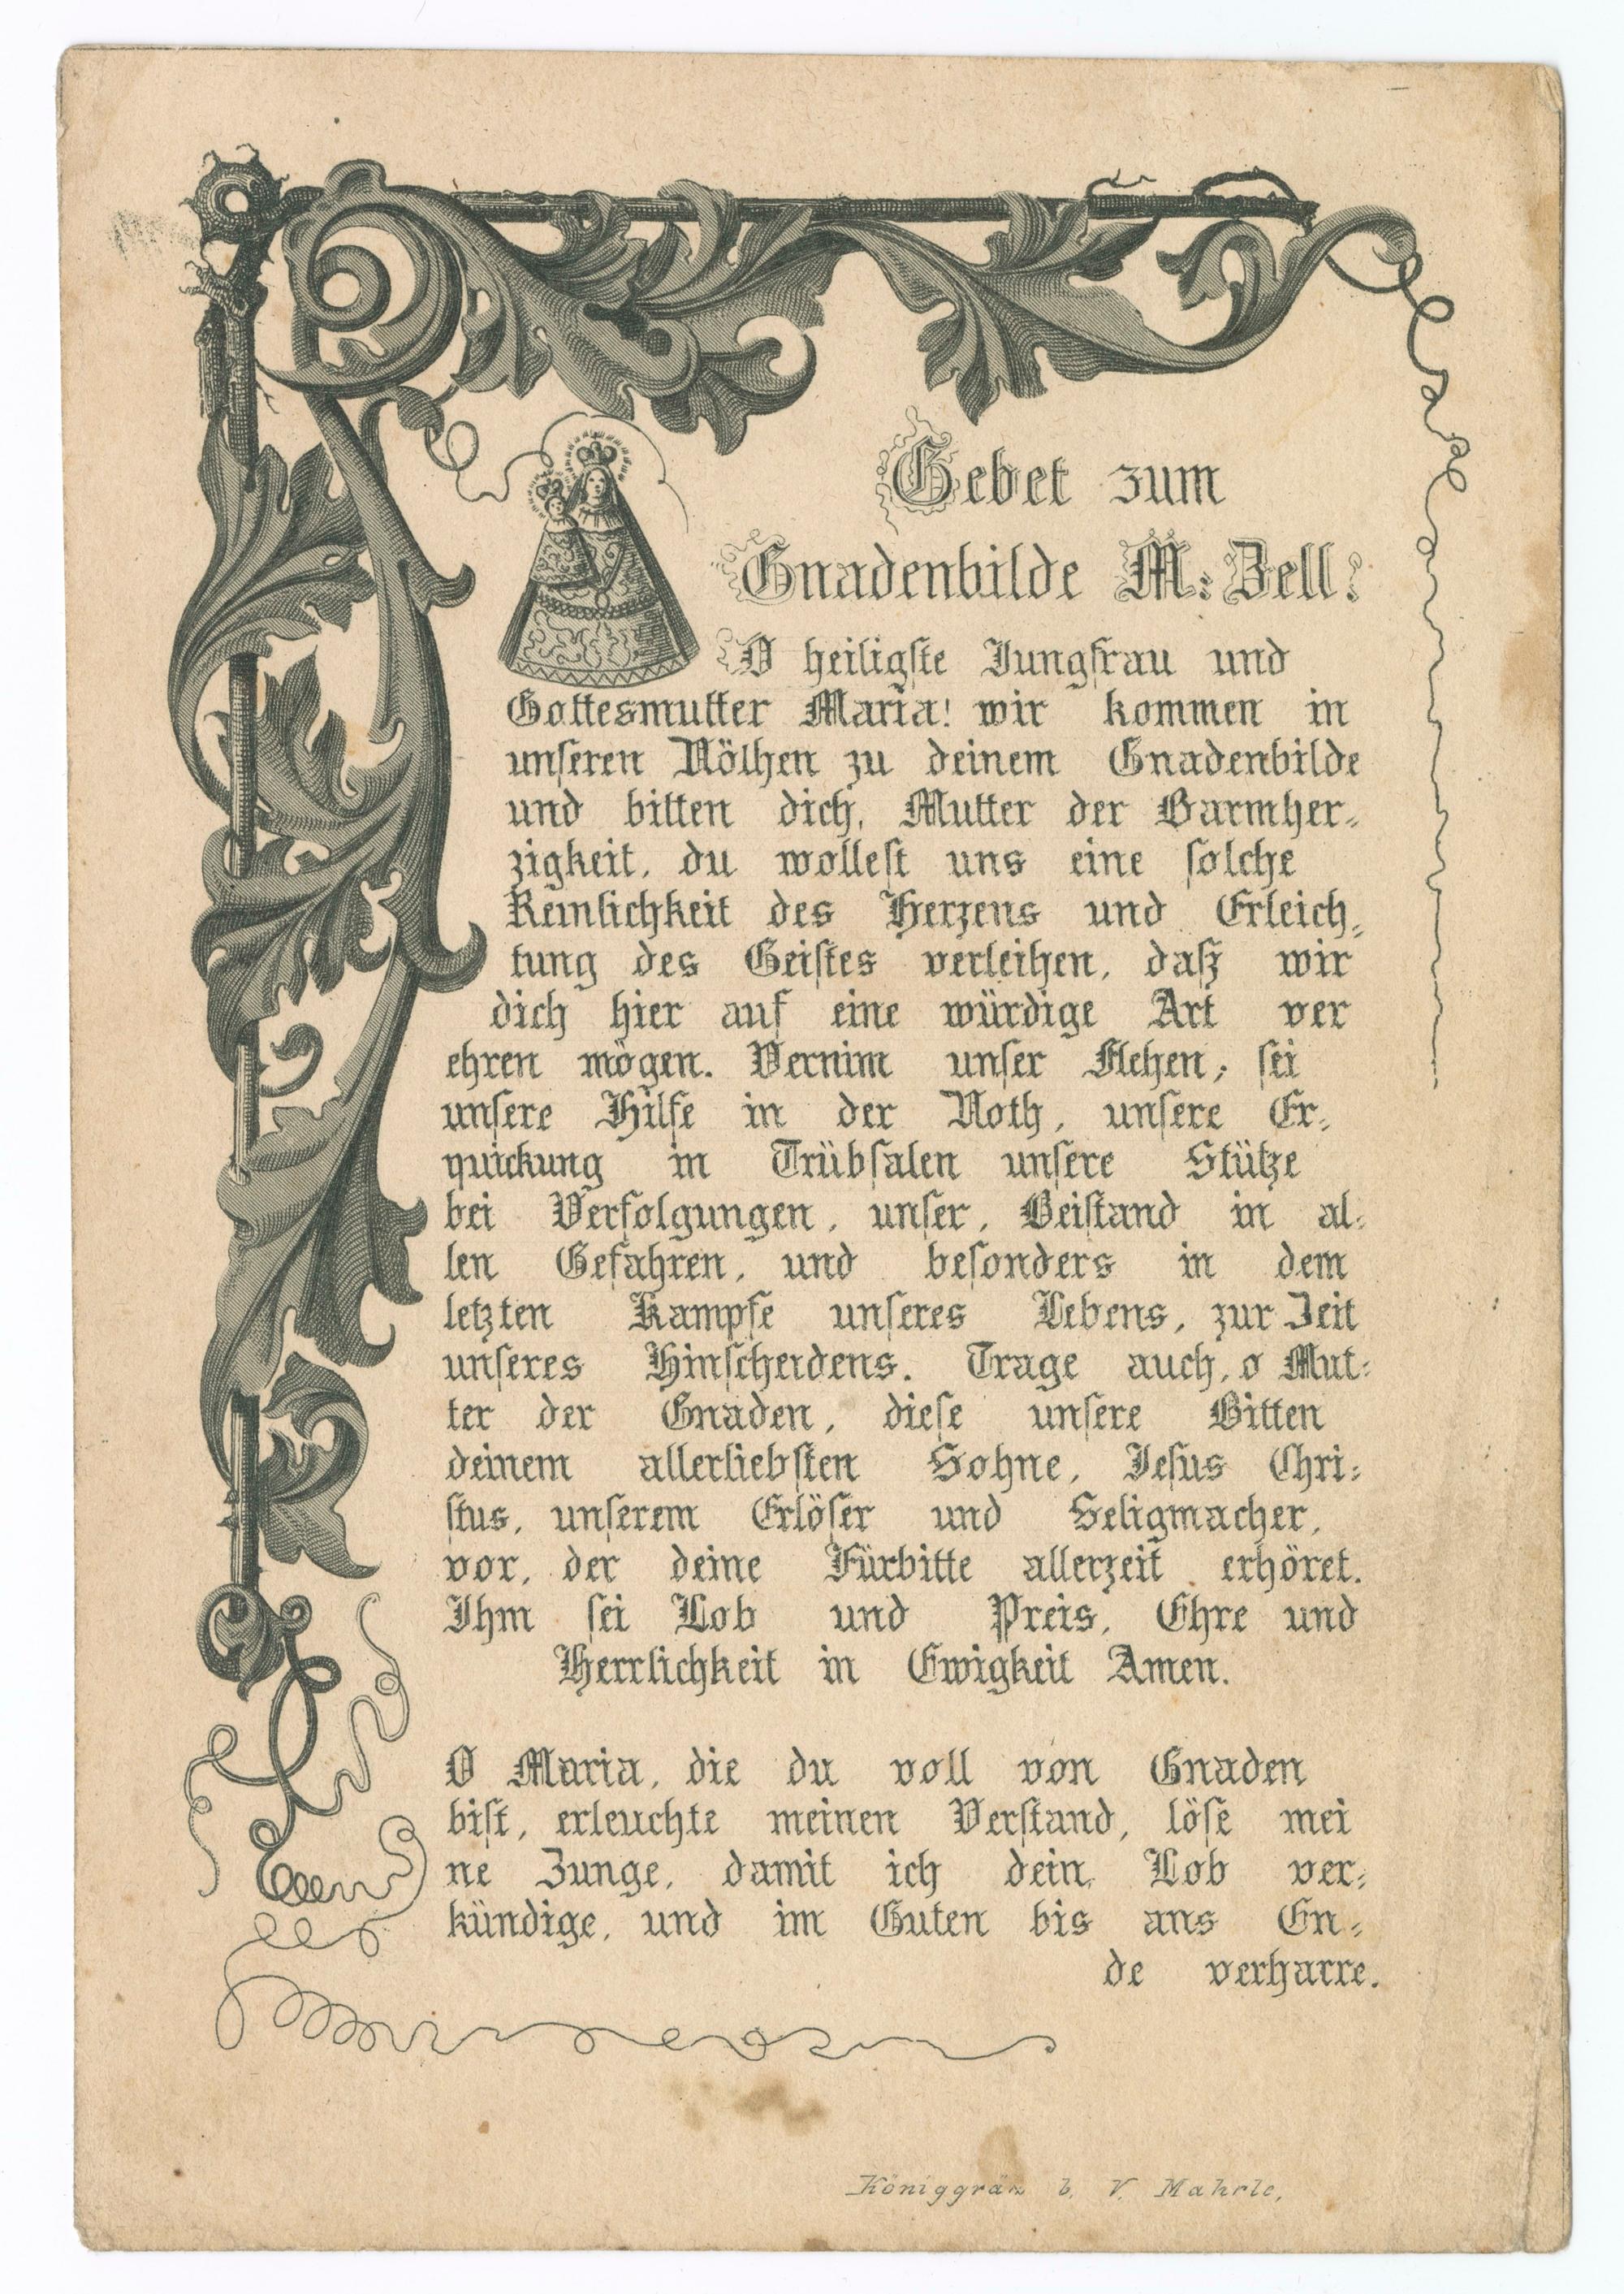 Gebet zum
Gnadenbilde M: Zell!
O heiligste Jungfrau und
Gottesmutter Maria! wir kommen in
unseren Nöthen zu deinem Gnadenbilde
und bitten dich, Mutter der Barmher-
zigkeit, du wollest uns eine solche
Reinlichkeit des Herzens und Erleich-
tung des Geistes verleihen, daß wir
dich hier auf eine würdige Art ver
ehren mögen. Vernim unser Flehen, sei
unsere Hilfe in der Noth, unsere Er-
quickung in Trübsalen unsere Stütze
bei Verfolgungen, unser, Beistand in al-
len Gefahren, und besonders in dem
letzten Kampfe unseres Lebens, zur Zeit
unseres Hinscheidens. Trage auch, o Mut-
ter der Gnaden, diese unsere Bitten
deinem allerliebsten Sohne, Jesus Chri-
stus, unserem Erlöser und Seligmacher,
vor, der deine Fürbitte allerzeit erhöret.
Ihm sei Lob und Preis, Ehre und
Herrlichkeit in Ewigkeit Amen.
O Maria, die du voll von Gnaden
bist, erleuchte meinen Verstand, löse mei
ne Zunge, damit ich dein, Lob ver-
kündige, und im Guten bis ans En-
de verharre.
Königgräz b. V. Mahrle,